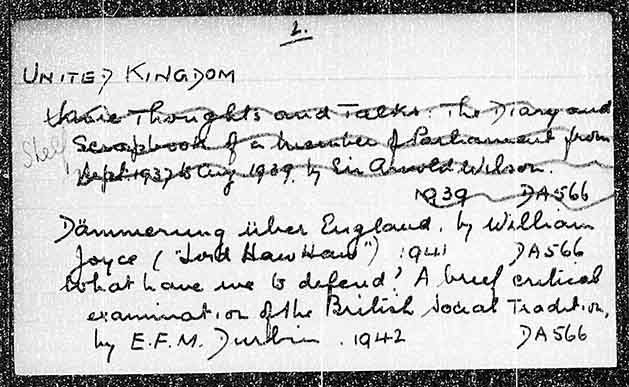 2.
UNITED KINGDOM
More Thoughts and Talks: The Diary and
Shelf Scrapbook of a member of Parliament from
Sept 1937 to Aug 1939. by Sir Arnold Wilson.
1939 DA566
Dämmerung über England, by William
Joyce ("Lord Haw Haw") 1941 DA566
What have we to defend? A brief critical
examination of the British Social Tradition,
by E.F.M. Durbin. 1942 DA566